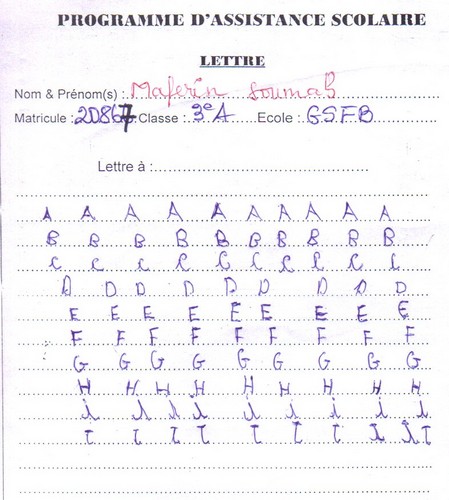 PROGRAMME D'ASSISTANCE SCOLAIRE
LETTRE
Nom & Prénom(s) : Maferin SoumaB
Matricule : 2D867 Classe : 3e A Ecole : GSFB
Lettre à :
A A A A A A A A A A
B B B B B B B B B B
C C C C C C C C C C
D D D D D D D D D
E E E E E E E E E
F F F F F F F F F
G G G G G G G G G
H H H H H H H H H
i i i i i i i i i
I I I I I I I I I I